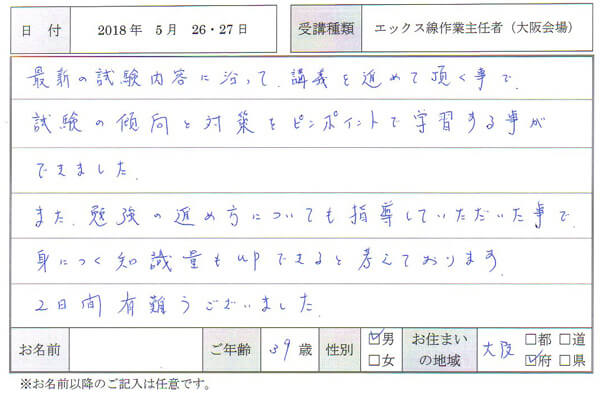 日付 2018年 5月 26・27日 受講種類 エックス線作業主任者（大阪会場）
最新の試験内容に沿って、講義を進めて頂く事で、
試験の傾向と対策をピンポイントで学習する事が
できました。
また、勉強の進め方についても指導していただいた事で、
身につく知識量もupできると考えております。
2日間有難うございました。
お名前 ご年齢 39歳 性別 ☑男 □女 お住まいの地域 大阪 □都 □道 ☑府 □県
※お名前以降のご記入は任意です。